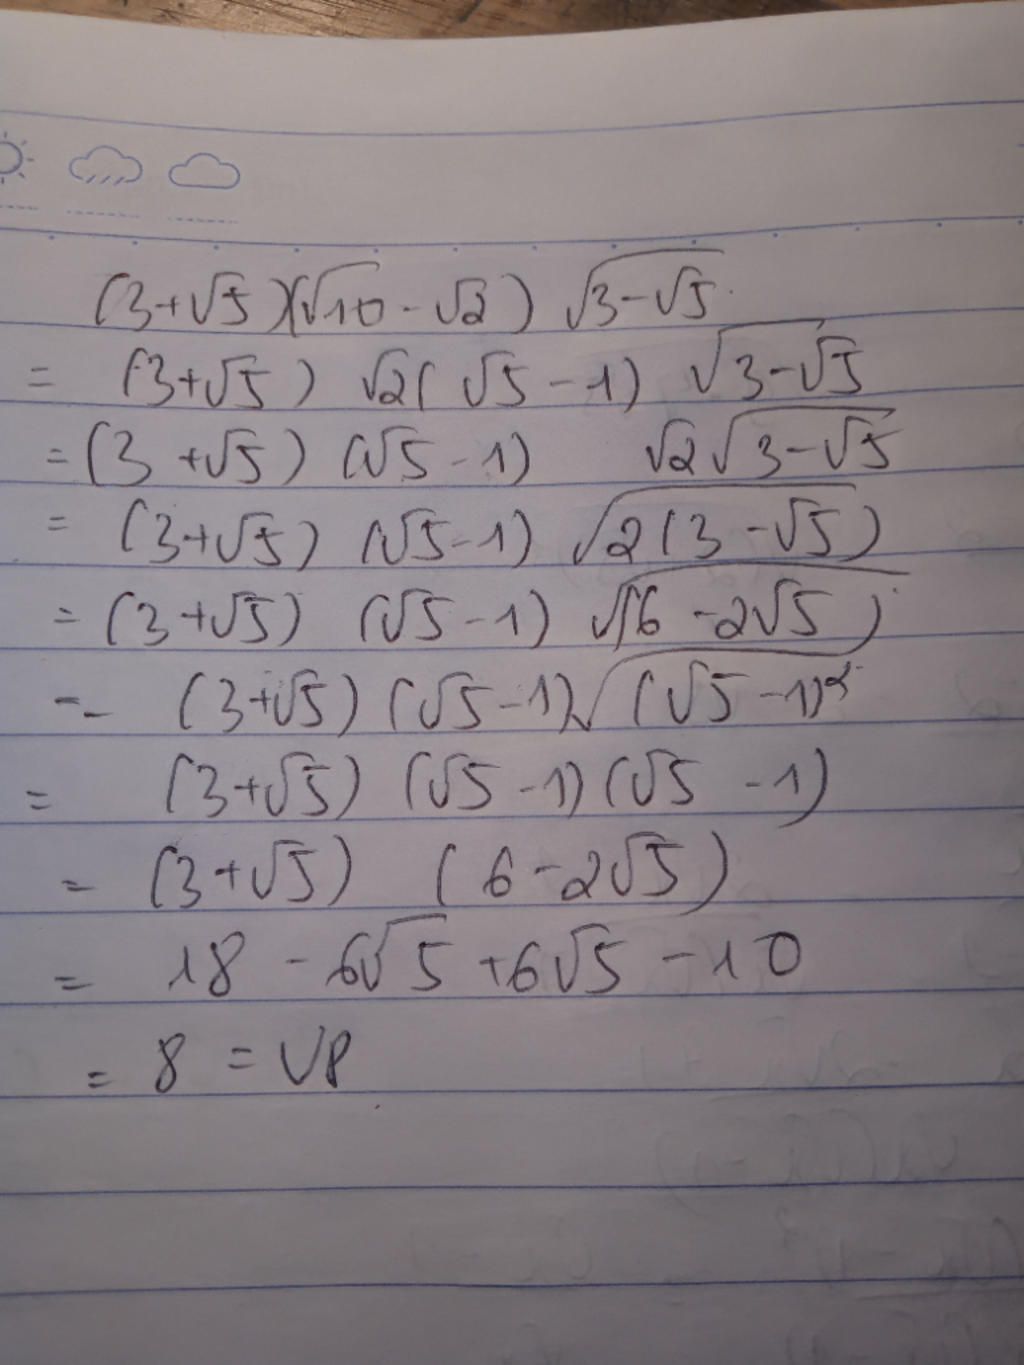 (3+√5)(√10-√2) √(3-√5)
= (3+√5) √2(√5-1) √(3-√5)
=(3+√5) (√5-1) √2√(3-√5)
= (3+√5) (√5-1) √(2(3-√5))
= (3+√5) (√5-1) √(6-2√5)
= (3+√5) (√5-1)√((√5-1)²)
= (3+√5) (√5-1)(√5-1)
= (3+√5) (6-2√5)
= 18 - 6√5 +6√5 -10
= 8 = VP